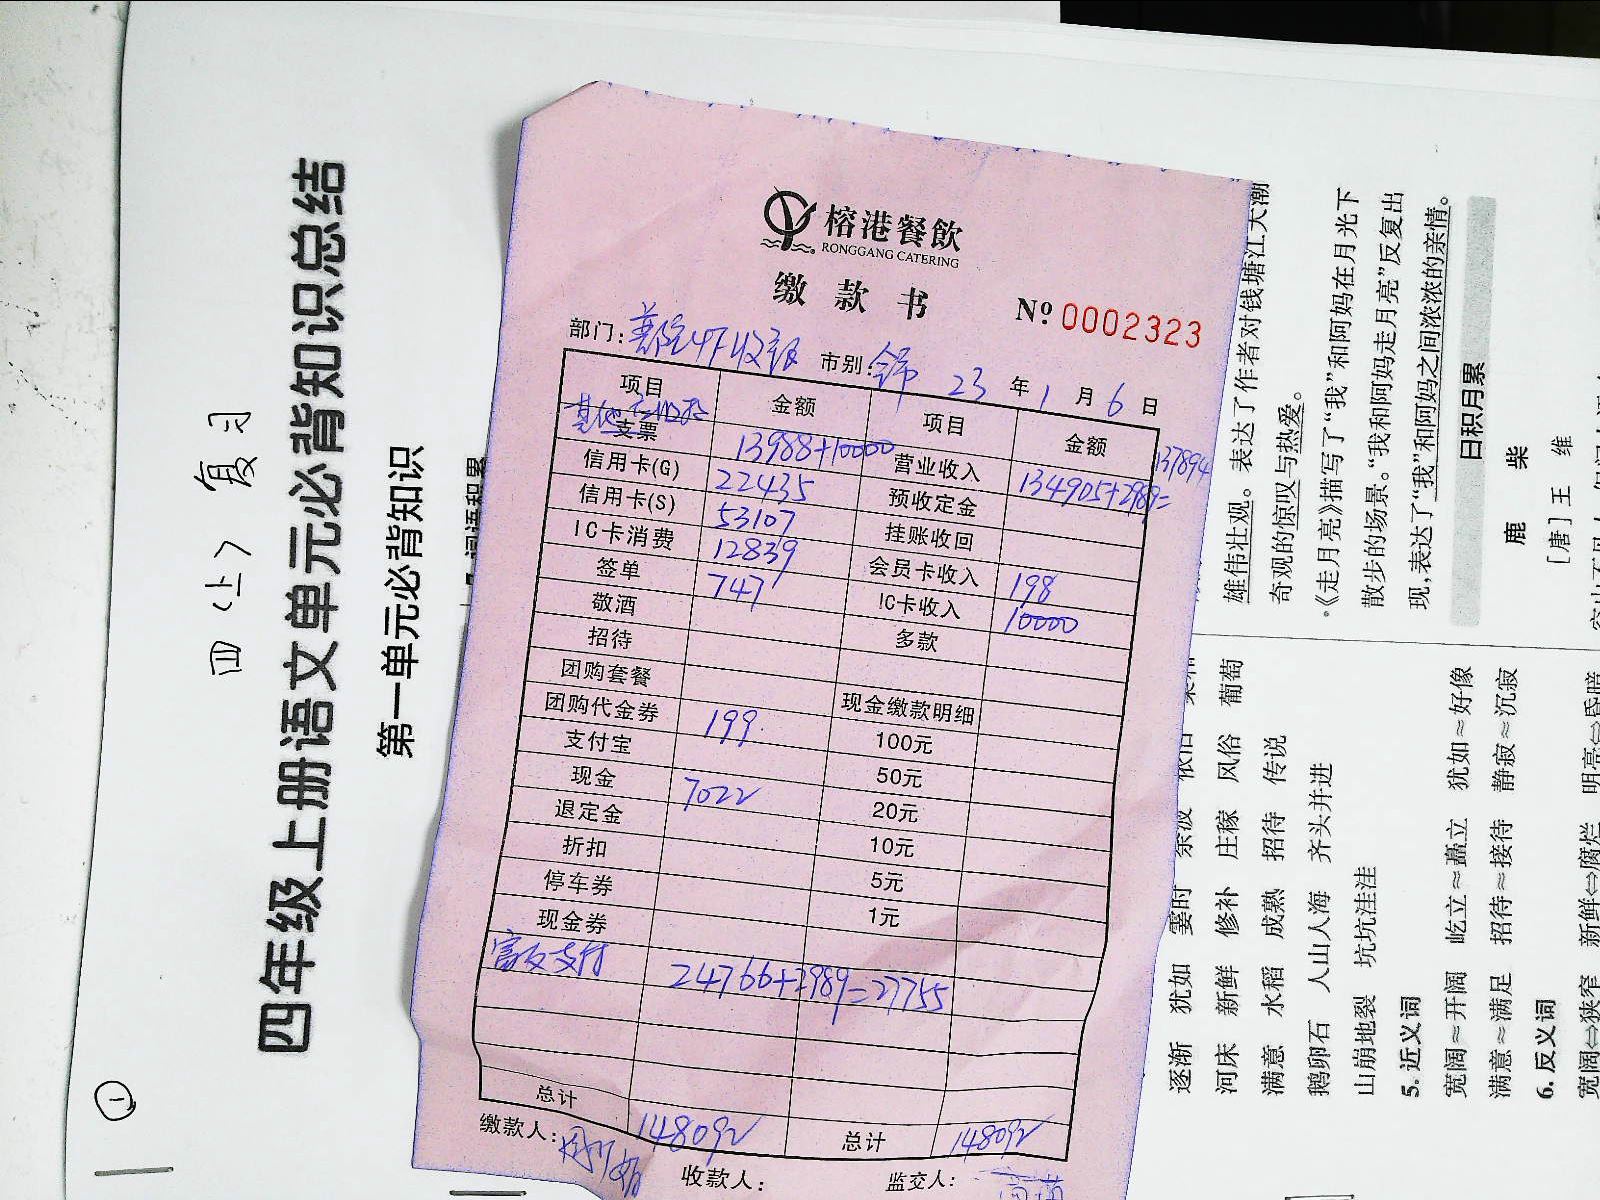 四(上)复习
四年级上册语文单元必背知识总结
第一单元必背知识
①
榕港餐飲
RONGGANG CATERING
缴款书 № 0002323
部门: 4F收银 市别: 23年1月6日
项目 金额 项目 金额
其他 支票 13988+10000 营业收入 134905+2989= 137894
信用卡(G) 22435 预收定金
信用卡(S) 53107 挂账收回
IC卡消费 12839 会员卡收入 198
签单 747 IC卡收入 10000
敬酒 多款
招待
团购套餐 现金缴款明细
团购代金券 199 100元
支付宝 50元
现金 7022 20元
退定金 10元
折扣 5元
停车券 1元
现金券
富友支付 24766+2989=27755
总计 148092 总计 148092
缴款人: 收款人: 监交人:
雄伟壮观。表达了作者对钱塘江大潮
奇观的惊叹与热爱。
·《走月亮》描写了“我”和阿妈在月光下
散步的场景。“我和阿妈走月亮”反复出
现,表达了“我”和阿妈之间浓浓的亲情。
日积月累
鹿柴
[唐]王维
逐渐 犹如 霎时 余波 依旧
河床 新鲜 修补 庄稼 风俗 葡萄
满意 水稻 成熟 招待 传说
鹅卵石 人山人海 齐头并进
山崩地裂 坑坑洼洼
5.近义词
宽阔≈开阔 屹立≈矗立 犹如≈好像
满意≈满足 招待≈接待 静寂≈沉寂
6.反义词
宽阔⇔狭窄 新鲜⇔腐烂 明亮⇔昏暗